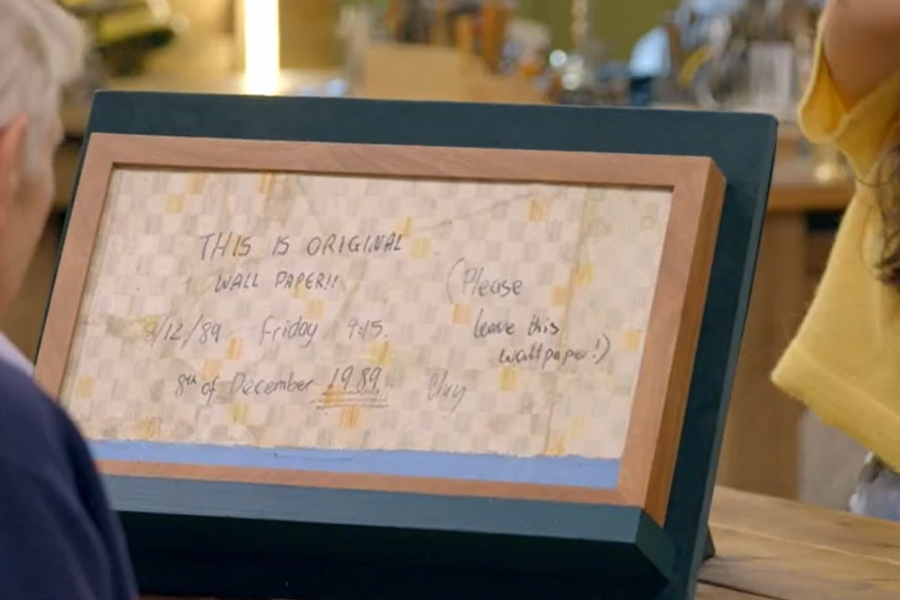 THIS IS ORIGINAL
WALL PAPER!!
8/12/89 Friday 9:15.
8th of December 1989.
(Please
leave this
wallpaper!)